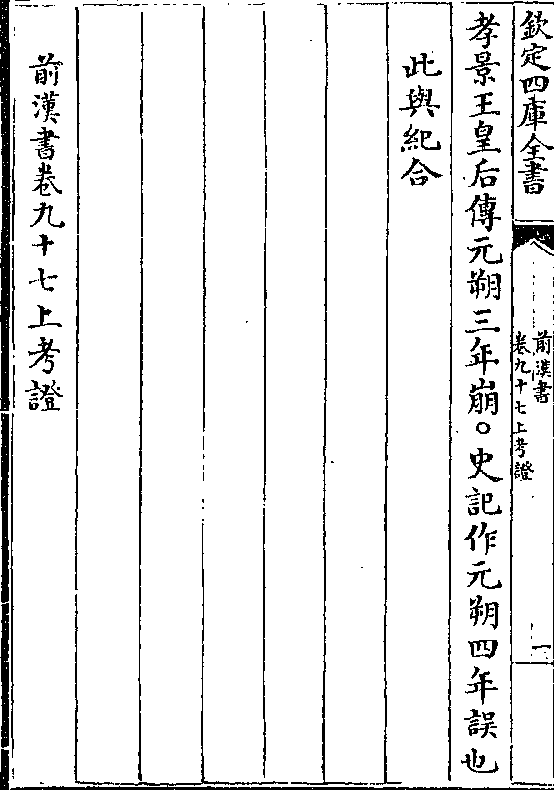 欽定四庫全書
前漢書
卷九十七上考證
一
孝景王皇后傳元朔三年崩○史記作元朔四年誤也
此與紀合
前漢書卷九十七上考證